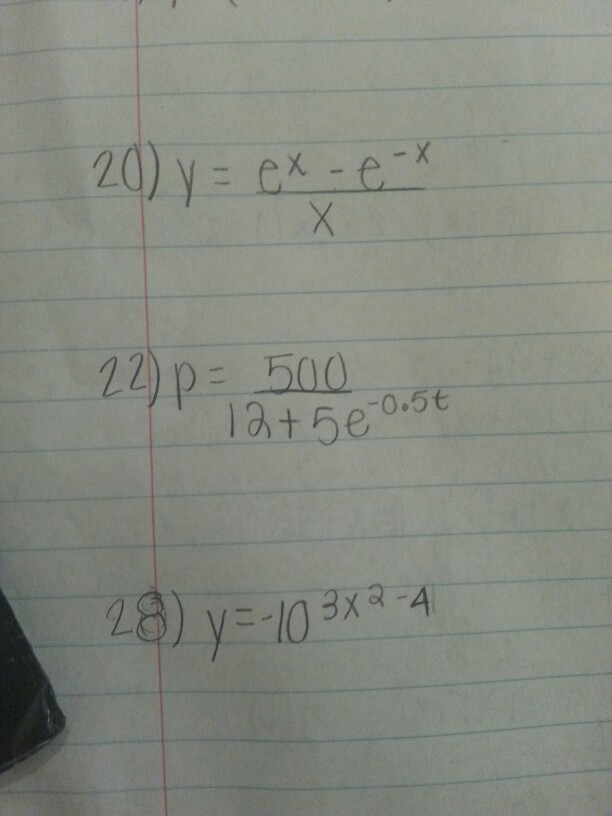 20) y = e^x - e^-x / x
22) p = 500 / 12 + 5e^-0.5t
28) y = -10^3x^2-4